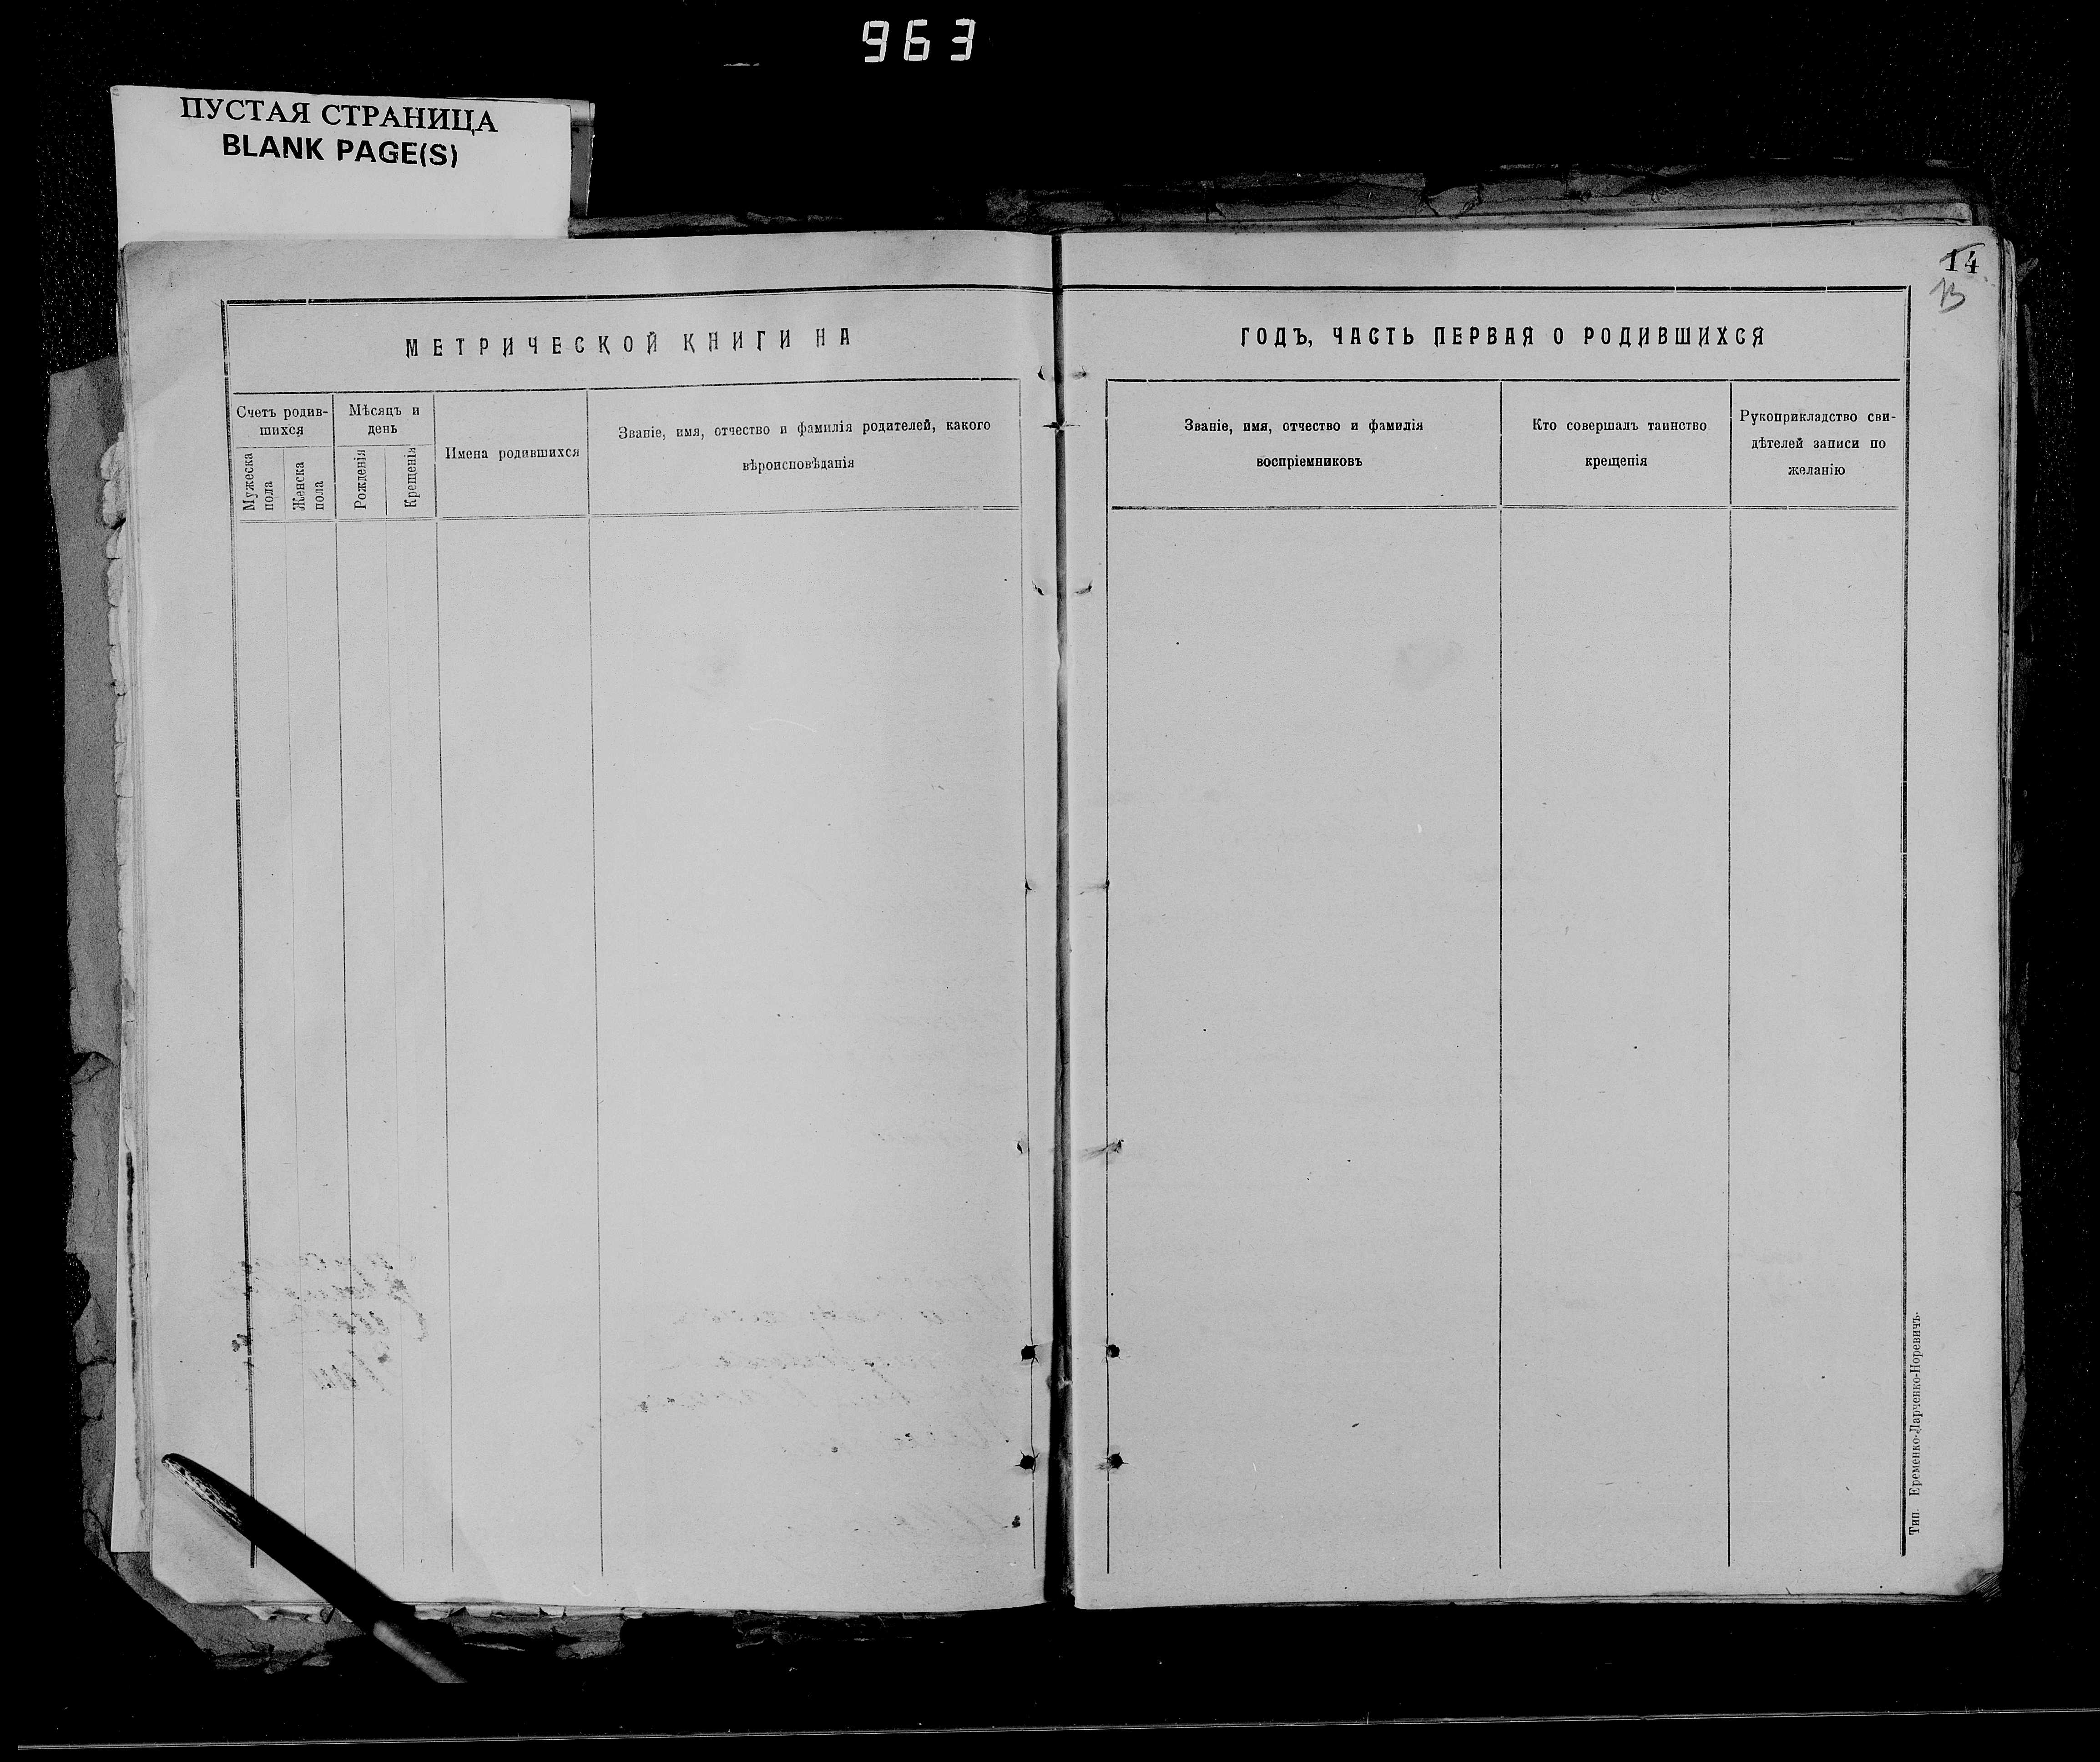 963
ПУСТАЯ СТРАНИЦА
BLANK PAGE(S)
14
13
МЕТРИЧЕСКОЙ КНИГИ НА
ГОДЪ, ЧАСТЬ ПЕРВАЯ О РОДИВШИХСЯ
Счетъ родив-
шихся
Мужеска
пола
Женска
пола
Мѣсяцъ и
день
Рожденія
Крещенія
Имена родившихся
Званіе, имя, отчество и фамилія родителей, какого
вѣроисповѣданія
Званіе, имя, отчество и фамилія
воспріемниковъ
Кто совершалъ таинство
крещенія
Рукоприкладство сви-
дѣтелей записи по
желанію
Тип. Еременко-Ларченко-Норевичъ.